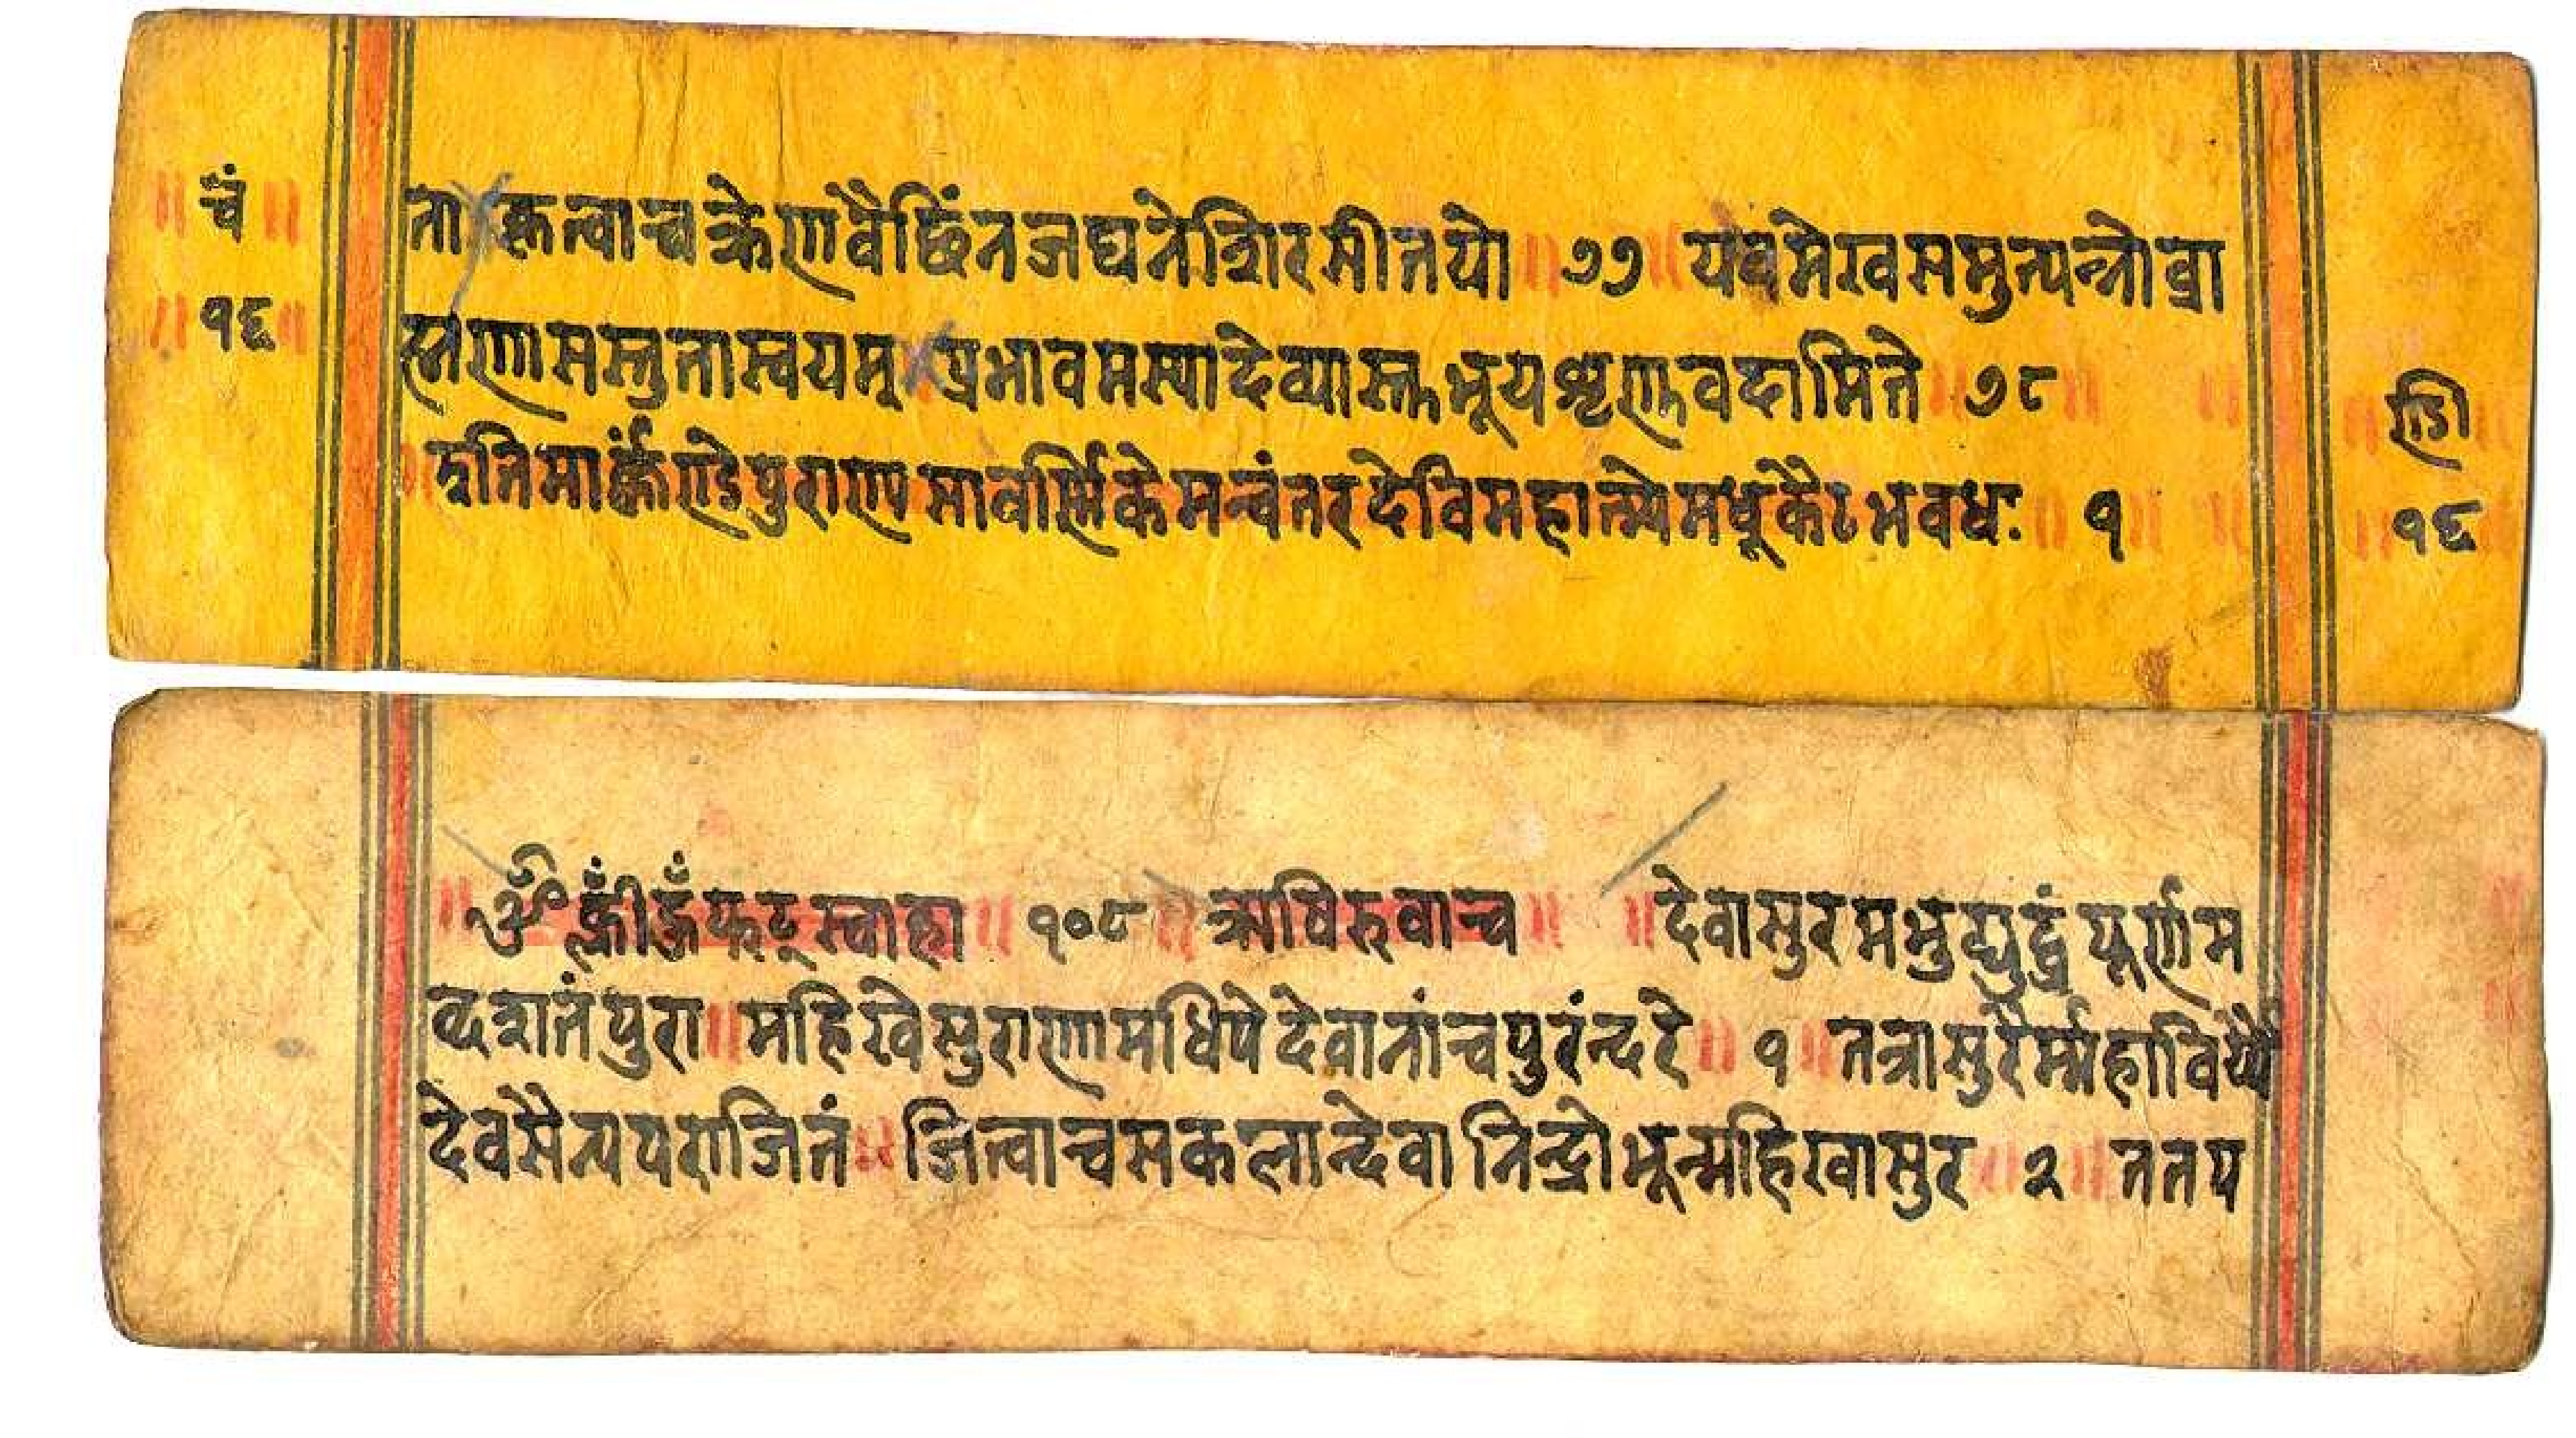 चं
१६
ता कृत्वा चक्रेण वै छिंन जघने शिरसी तयो ॥ ७७ ॥ यवमेख समुत्पन्नो ब्रा
ह्मणा सस्तुता स्वयम् प्रभावमस्या देव्यास्तु भूय शृणु वदामि ते ॥ ७८ ॥
॥ इति मार्कंण्डे पुराणे सावर्णिके मन्वंतर देवि महात्म्ये मधूकैटभवधः ॥ १ ॥
ण्डी
१६
॥ ॐ ह्रीं हुँ फट् स्वाहा ॥ १०८ ॥ ऋषिरुवाच ॥ ॥ देवासुरमभुद्युद्धं पूर्णम
ब्दशतं पुरा ॥ महिखेसुराणामधिपे देवानांच पुरंन्दरे ॥ १ ॥ तत्रासुरैर्म्महाविर्य्यै
देवसैन्य पराजितं ॥ जित्वा च सकलान्देवानिन्द्रो भून्महिखासुर ॥ २ ॥ ततप